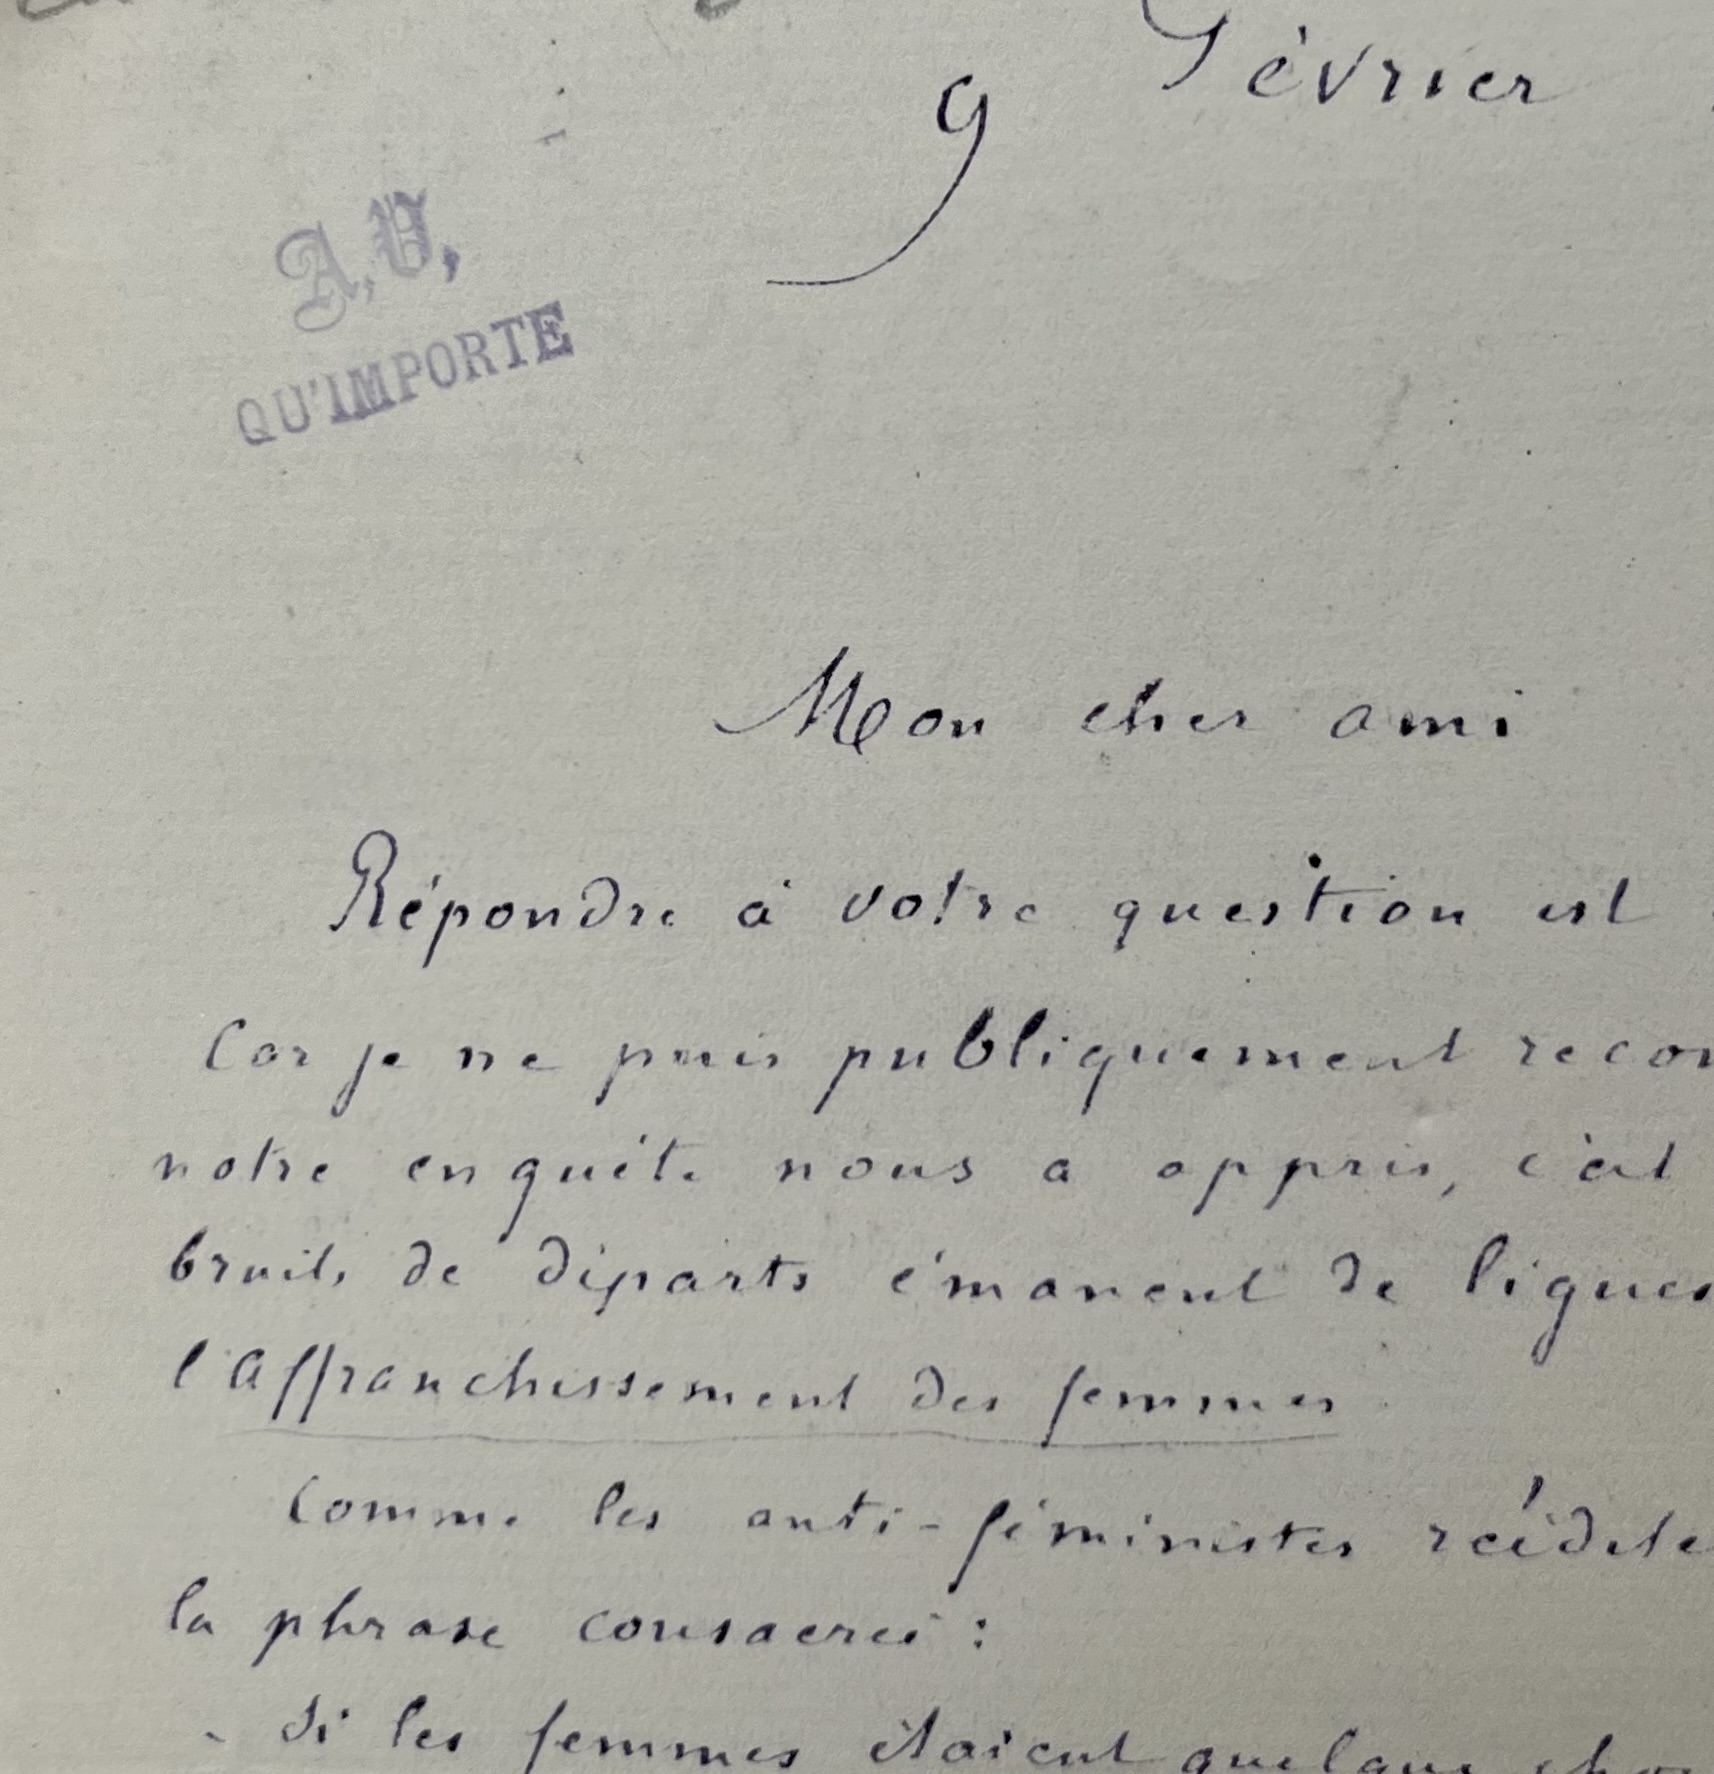 9 Février
A. V,
QU'IMPORTE
Mon cher ami
Répondre à votre question est
Car je ne puis publiquement recon
notre enquête nous a appris, c'est
bruits de départs émanent de ligues
l'affranchissement des femmes
Comme les anti-féministes réédite
la phrase consacrée :
- Si les femmes étaient quelque cho